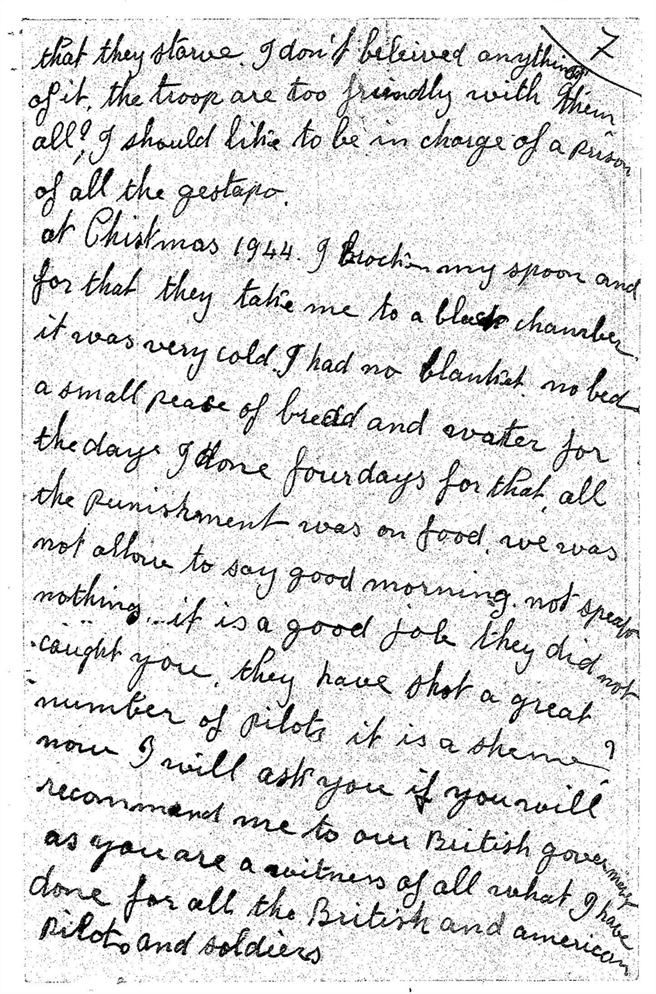 7
that they starve. I don't beleived anything
of it, the troop are too friendly with them
all? I should like to be in charge of a prison
of all the gestapo.
at Christmas 1944. I brocken my spoon and
for that they take me to a black chamber
it was very cold. I had no blanket. no bed
a small pease of bread and water for
the days I done four days for that, all
the punishment was on food, we was
not allow to say good morning. not speak
nothing... it is a good job they did not
caught you, they have shot a great
number of pilots it is a sheme?
now I will ask you if you will
recommend me to our British government
as you are a witness of all what I have
done for all the British and american
pilots and soldiers